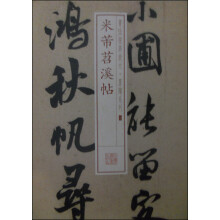 小圃能留客
鸿秋帆寻
米芾苕溪帖